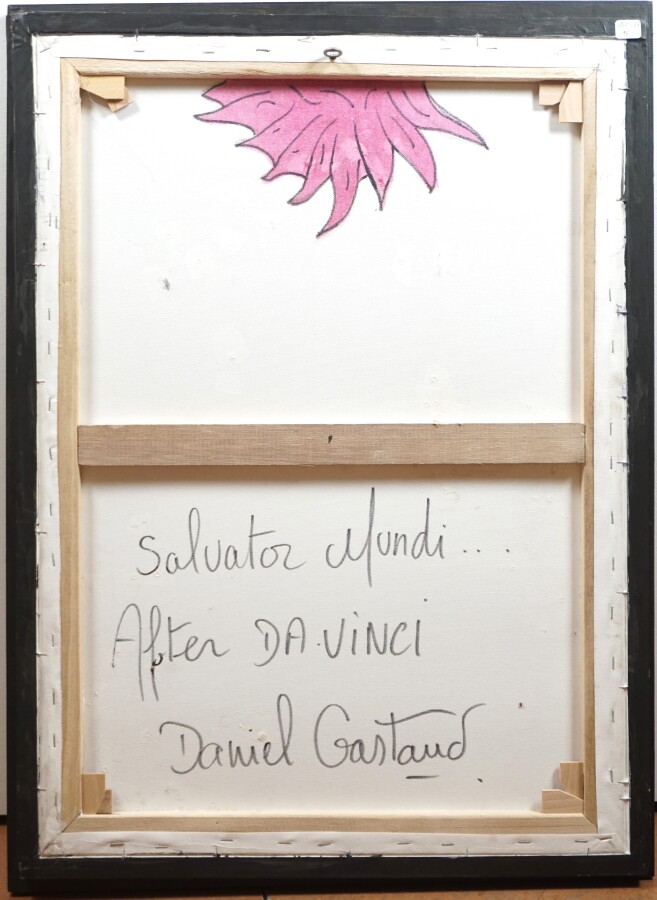 Salvator Mundi....
After DA.VINCI
Daniel Gastaud